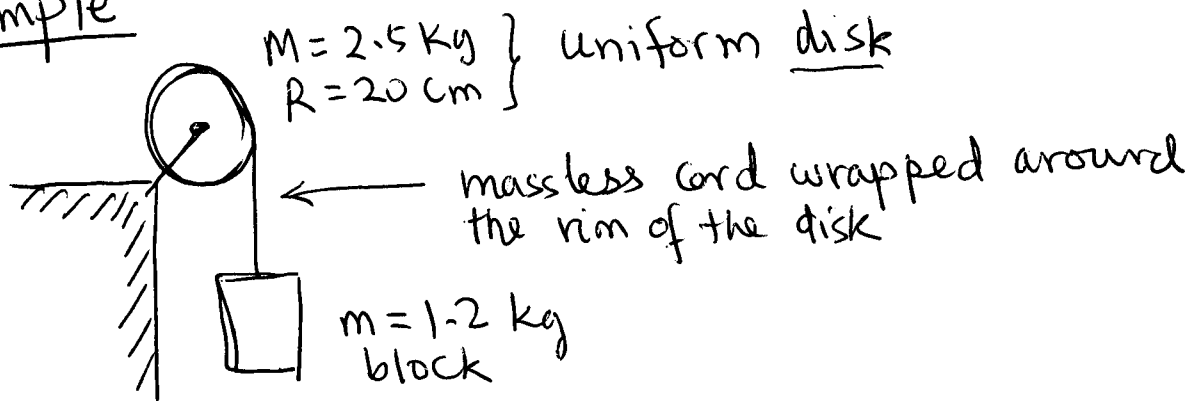 mple
M = 2.5 Kg } uniform disk
R = 20 cm
massless cord wrapped around
the rim of the disk
m = 1.2 kg
block